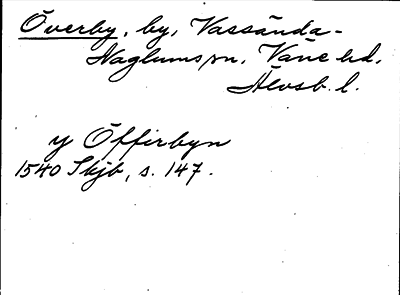 Överby, by, Vassända-
Naglums sn. Väne hd.
Älvsb. l.
y Öffirbyn
1540 Skjb, s. 147.